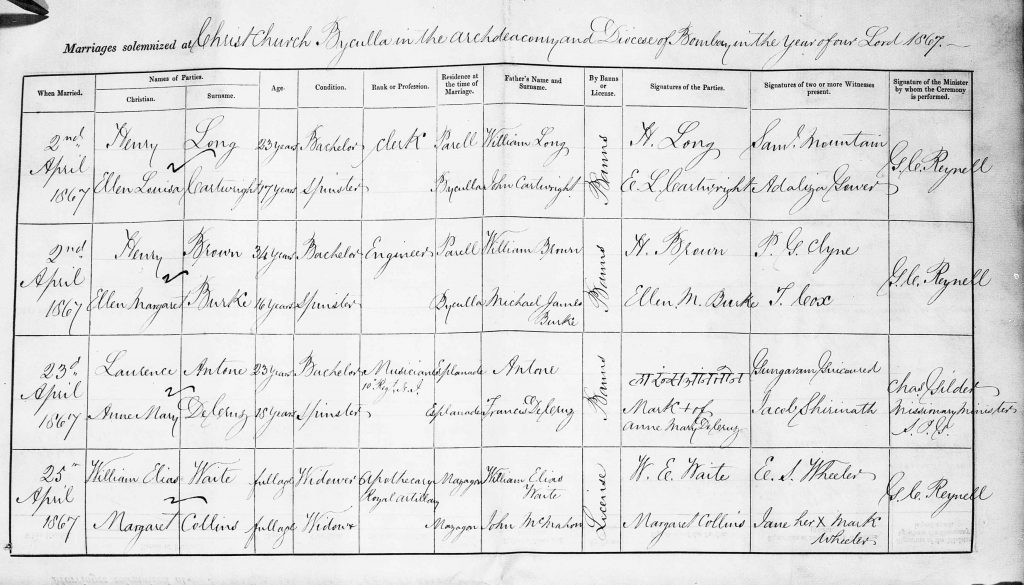 Marriages solemnized at Christ Church Byculla in the archdeaconry and Diocese of Bombay in the Year of our Lord 1867.
When Married. Names of Parties. Age. Condition. Rank or Profession. Residence at the time of Marriage. Father's Name and Surname. By Banns or License. Signatures of the Parties. Signatures of two or more Witnesses present. Signature of the Minister by whom the Ceremony is performed.
Christian. Surname.
2nd April 1867 Henry Long 23 years Bachelor Clerk Parell William Long Banns H. Long Saml. Mountain G. C. Reynell
Ellen Louisa Cartwright 17 years Spinster Byculla John Cartwright E. L. Cartwright Adaliza Gower
2nd April 1867 Henry Brown 34 years Bachelor Engineer Parell William Brown Banns H. Brown P. G. Clyne G. C. Reynell
Ellen Margaret Burke 16 years Spinster Byculla Michael James Burke Ellen M. Burke T. Cox
23d April 1867 Laurence Antone 23 years Bachelor Musician 10 Regt. N. I. Esplanade Antone Banns Gungaram Chas. Gilder Missionary Minister S. P. G.
Anne Mary DeCruz 18 years Spinster Esplanade Francis DeCruz Mark + of Anne Mary DeCruz Jacob Shirinath
25th April 1867 William Elias Waite full age Widower Apothecary Royal Artillery Mazagon William Elias Waite License W. E. Waite E. S. Wheeler G. C. Reynell
Margaret Collins full age Widow Mazagon John McMahon Margaret Collins Jane her X Mark Wheeler